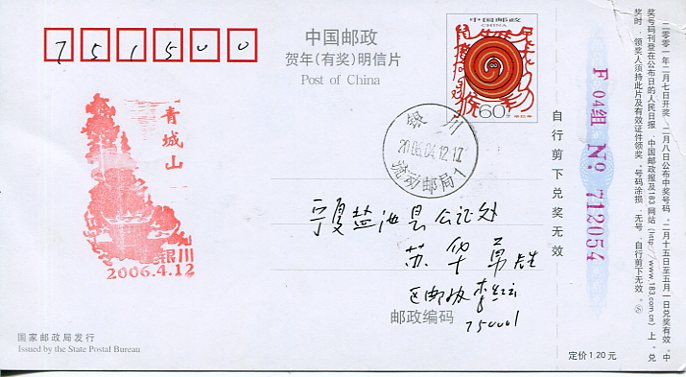 751500
中国邮政
贺年(有奖)明信片
Post of China
中国邮政
CHINA
60分
辛巳年
青城山
银川
2006.4.12
银川
2006.04.12.17
流动邮局1
宁夏盐池县公证处
苏华勇先生
区邮协李红云
邮政编码
750001
国家邮政局发行
Issued by the State Postal Bureau
定价1.20元
自行剪下兑奖无效
F 04组 No 712054
二零零一年二月七日开奖,二月八日公布中奖号码,二月十五日至五月一日兑奖有效。中
奖号码刊登在公布日的人民日报、中国邮政报及183网站(http://www.183.com.cn)上。兑
奖时,领奖人须持此片及有效证件领奖。号码涂损、无号、自行剪下无效。